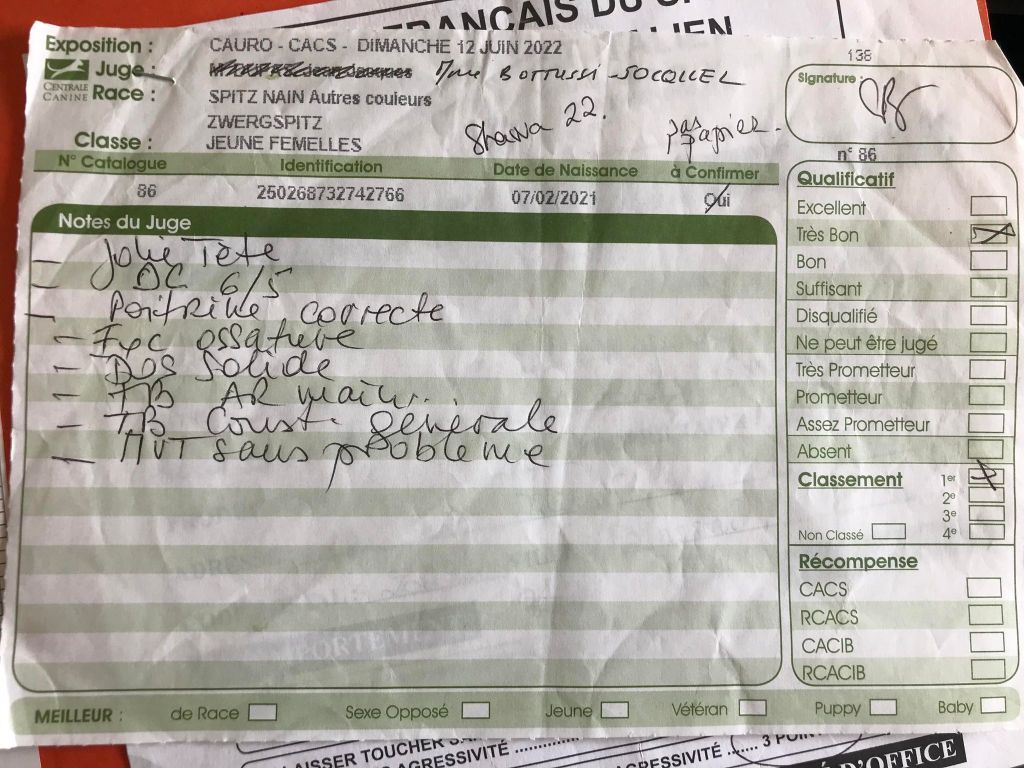 FRANÇAIS DU
Exposition : CAURO - CACS - DIMANCHE 12 JUIN 2022
138
Juge : Mme BOTTUSSI-JOCQUEL
Signature :
CENTRALE CANINE
Race : SPITZ NAIN Autres couleurs
ZWERGSPITZ
22. pas papier.
Classe : JEUNE FEMELLES
n° 86
N° Catalogue Identification Date de Naissance à Confirmer
86 250268732742766 07/02/2021 Oui
Notes du Juge
- Jolie Tête
- DC 6/5
- Poitrine correcte
- Exc ossature
- Dos solide
- TB AR main..
- TB Const. générale
- MVT sans problème
Qualificatif
Excellent
Très Bon
Bon
Suffisant
Disqualifié
Ne peut être jugé
Très Prometteur
Prometteur
Assez Prometteur
Absent
Classement 1er
2e
3e
Non Classé 4e
Récompense
CACS
RCACS
CACIB
RCACIB
MEILLEUR : de Race Sexe Opposé Jeune Vétéran Puppy Baby
LAISSER TOUCHER
AGRESSIVITÉ
AGRESSIVITÉ ....... 3
D'OFFICE